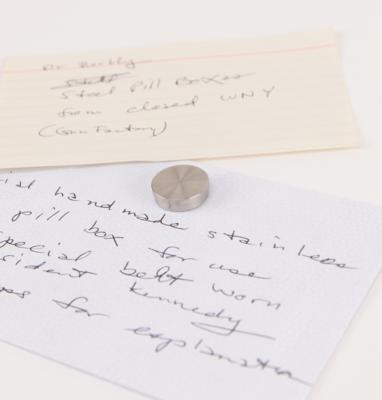 Dr. Burkly
Steel Pill Boxes
from closed WNY
(Gun Factory)
ial handmade stainless
pill box for use
pecial belt worn
sident Kennedy
for explanation